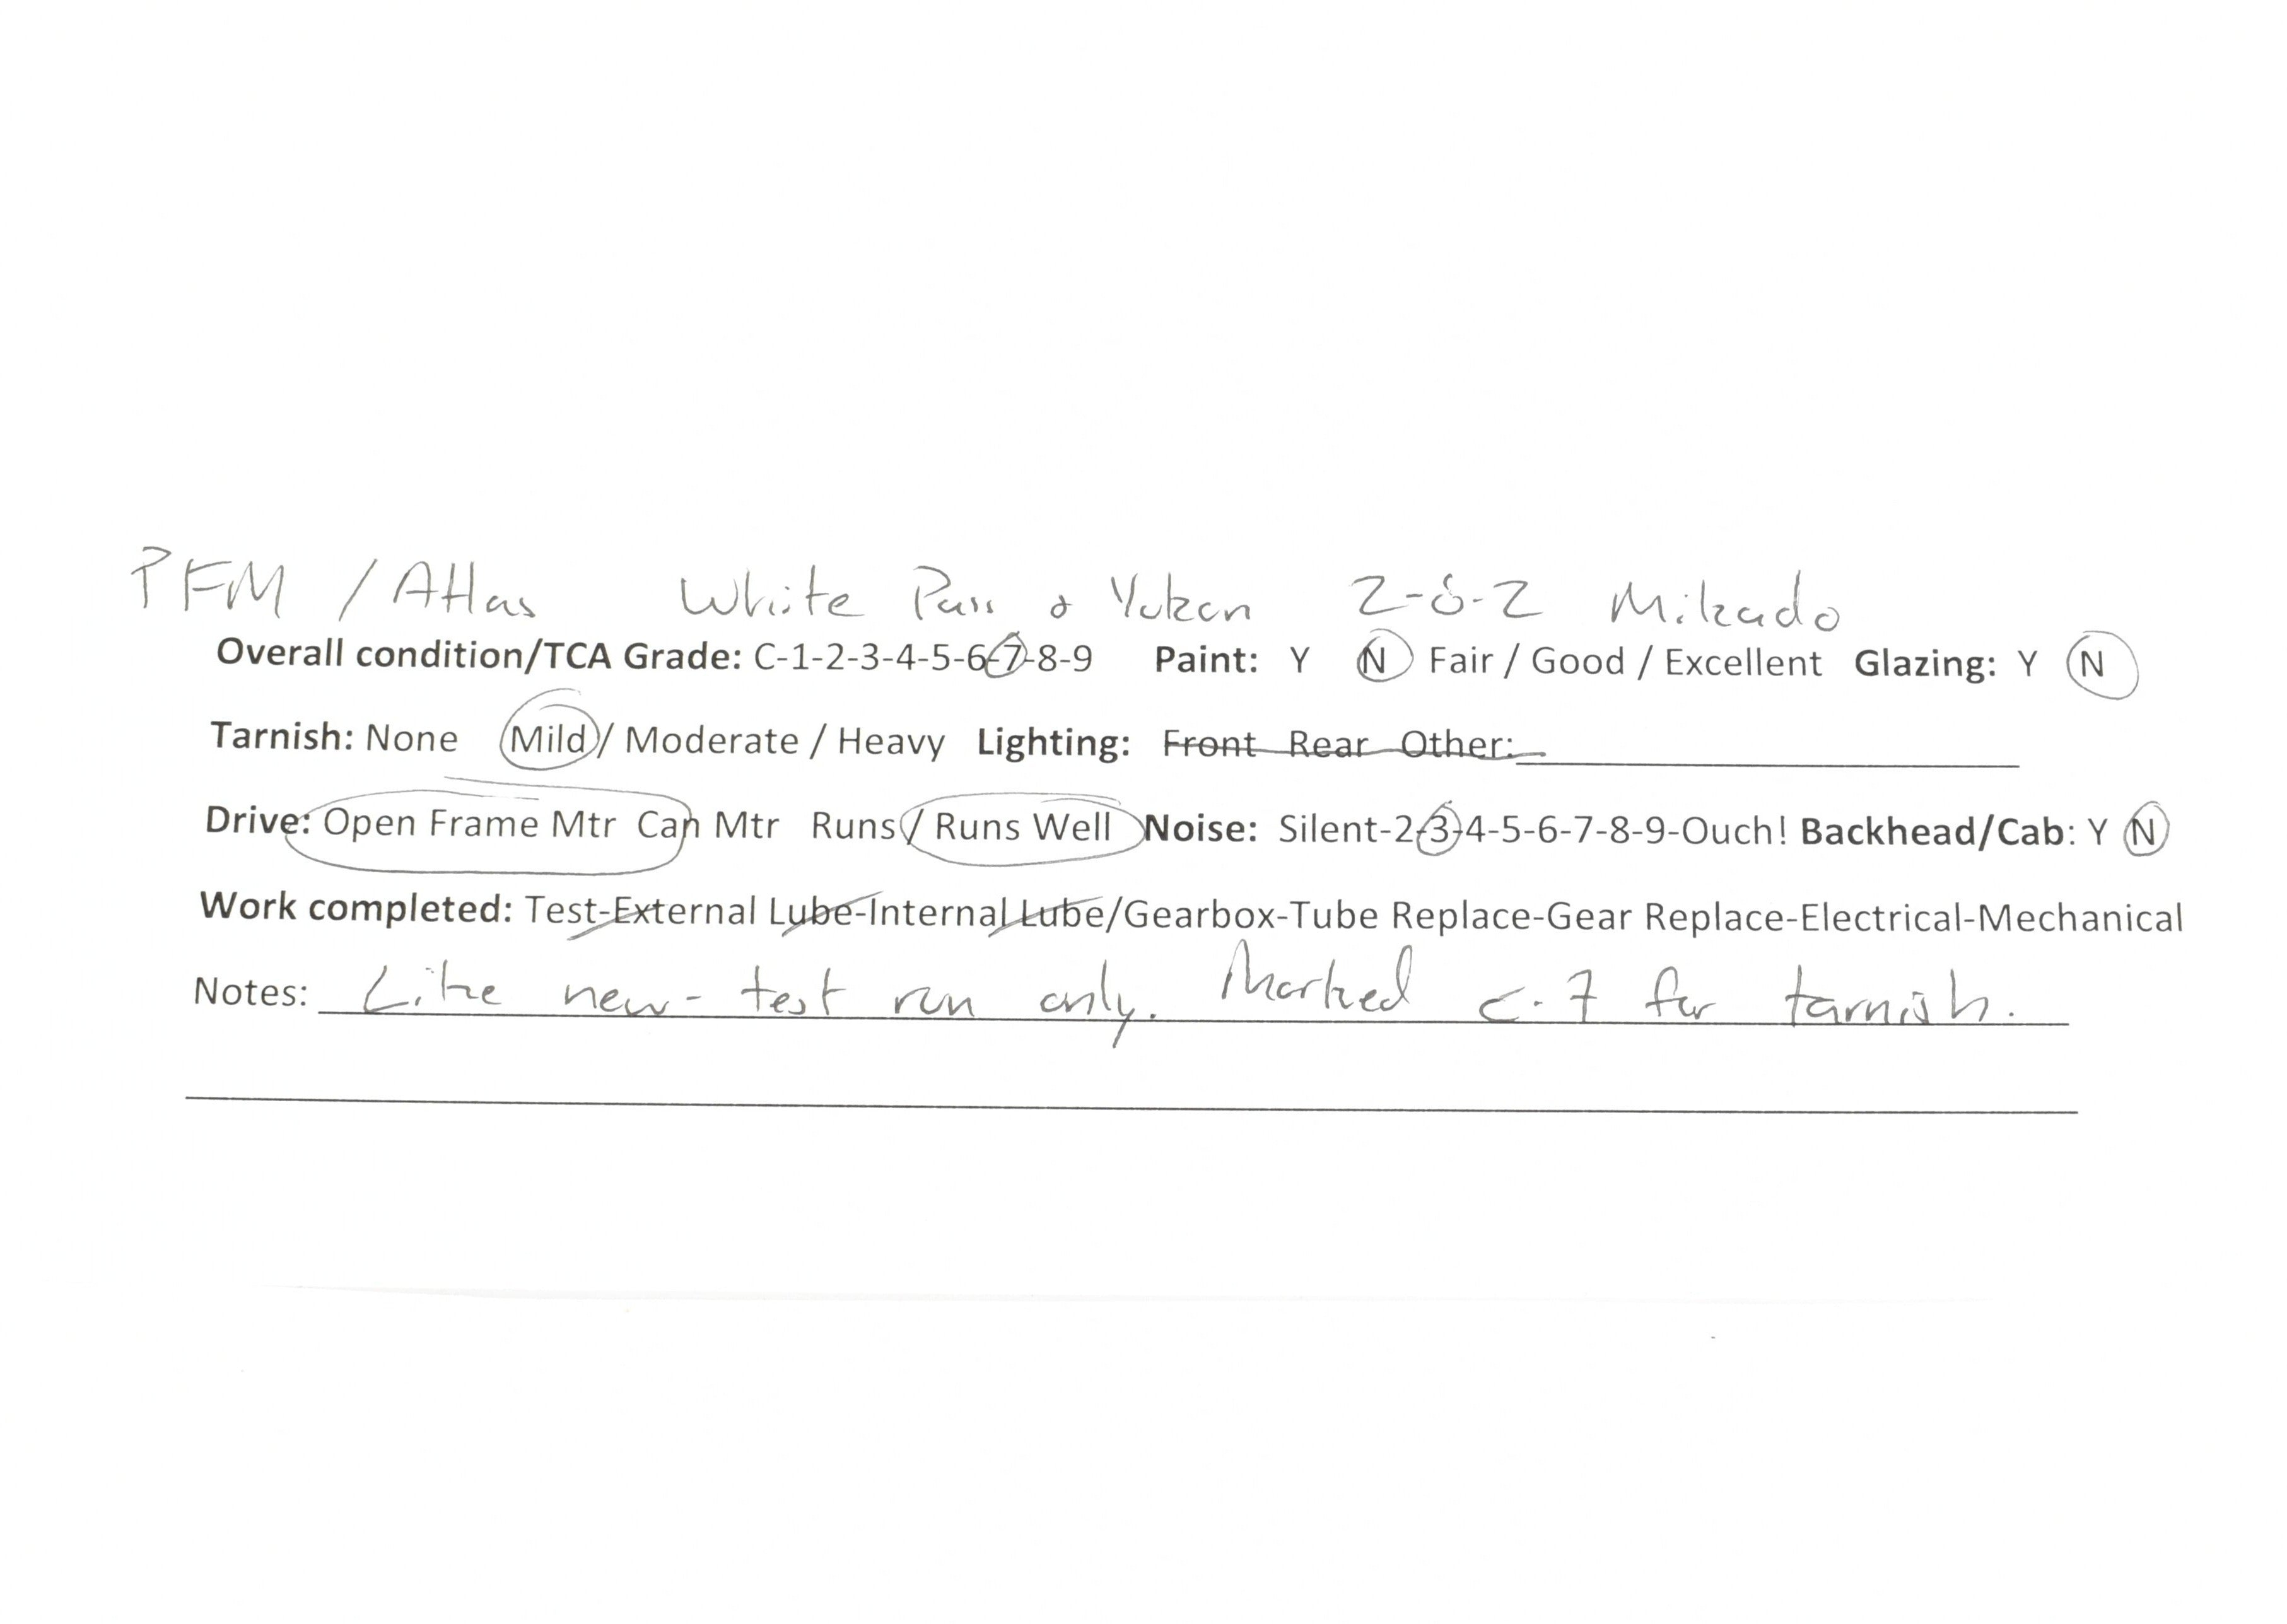 PFM / Atlas White Pass & Yukon 2-8-2 Mikado
Overall condition/TCA Grade: C-1-2-3-4-5-6-7-8-9 Paint: Y N Fair / Good / Excellent Glazing: Y N
Tarnish: None Mild / Moderate / Heavy Lighting: Front Rear Other:
Drive: Open Frame Mtr Can Mtr Runs / Runs Well Noise: Silent-2-3-4-5-6-7-8-9-Ouch! Backhead/Cab: Y N
Work completed: Test-External Lube-Internal Lube/Gearbox-Tube Replace-Gear Replace-Electrical-Mechanical
Notes: Like new - test run only. Marked C-7 for tarnish.